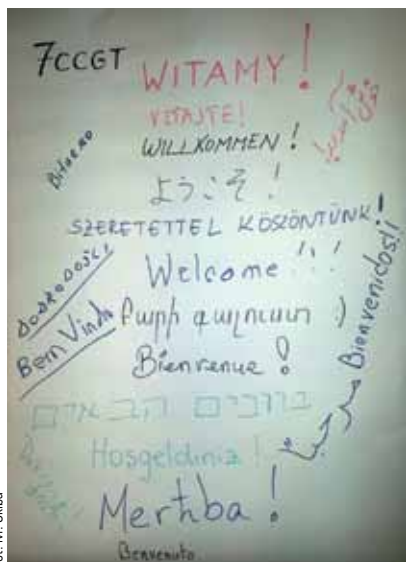 7CCGT
WITAMY!
VITAJTE!
WILLKOMMEN!
ようこそ!
SZERETETTEL KÖSZÖNTÜNK!
Welcome!!!
DOBRODOŠLI
Bem Vindo
Բարի գալուստ :)
Bienvenidos!
Bienvenue!
ברוכים הבאים
Hosgeldiniz!
مرحبا
Merħba!
Benvenuto